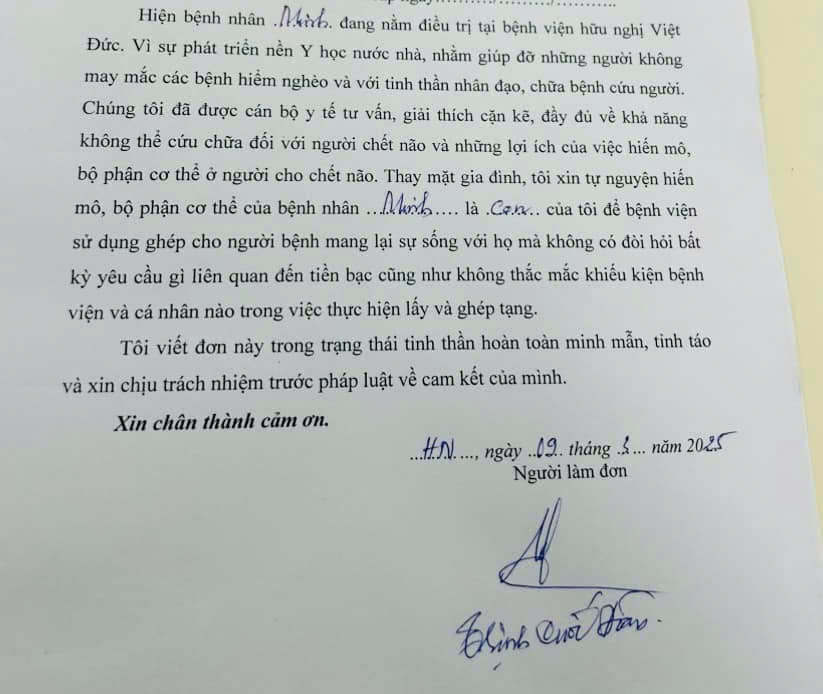 Hiện bệnh nhân .Minh. đang nằm điều trị tại bệnh viện hữu nghị Việt
Đức. Vì sự phát triển nền Y học nước nhà, nhằm giúp đỡ những người không
may mắc các bệnh hiểm nghèo và với tinh thần nhân đạo, chữa bệnh cứu người.
Chúng tôi đã được cán bộ y tế tư vấn, giải thích cặn kẽ, đầy đủ về khả năng
không thể cứu chữa đối với người chết não và những lợi ích của việc hiến mô,
bộ phận cơ thể ở người cho chết não. Thay mặt gia đình, tôi xin tự nguyện hiến
mô, bộ phận cơ thể của bệnh nhân ...Minh.... là .Con.. của tôi để bệnh viện
sử dụng ghép cho người bệnh mang lại sự sống với họ mà không có đòi hỏi bất
kỳ yêu cầu gì liên quan đến tiền bạc cũng như không thắc mắc khiếu kiện bệnh
viện và cá nhân nào trong việc thực hiện lấy và ghép tạng.
Tôi viết đơn này trong trạng thái tinh thần hoàn toàn minh mẫn, tỉnh táo
và xin chịu trách nhiệm trước pháp luật về cam kết của mình.
Xin chân thành cảm ơn.
...H.N. ..., ngày ..09.. tháng .3... năm 2025
Người làm đơn